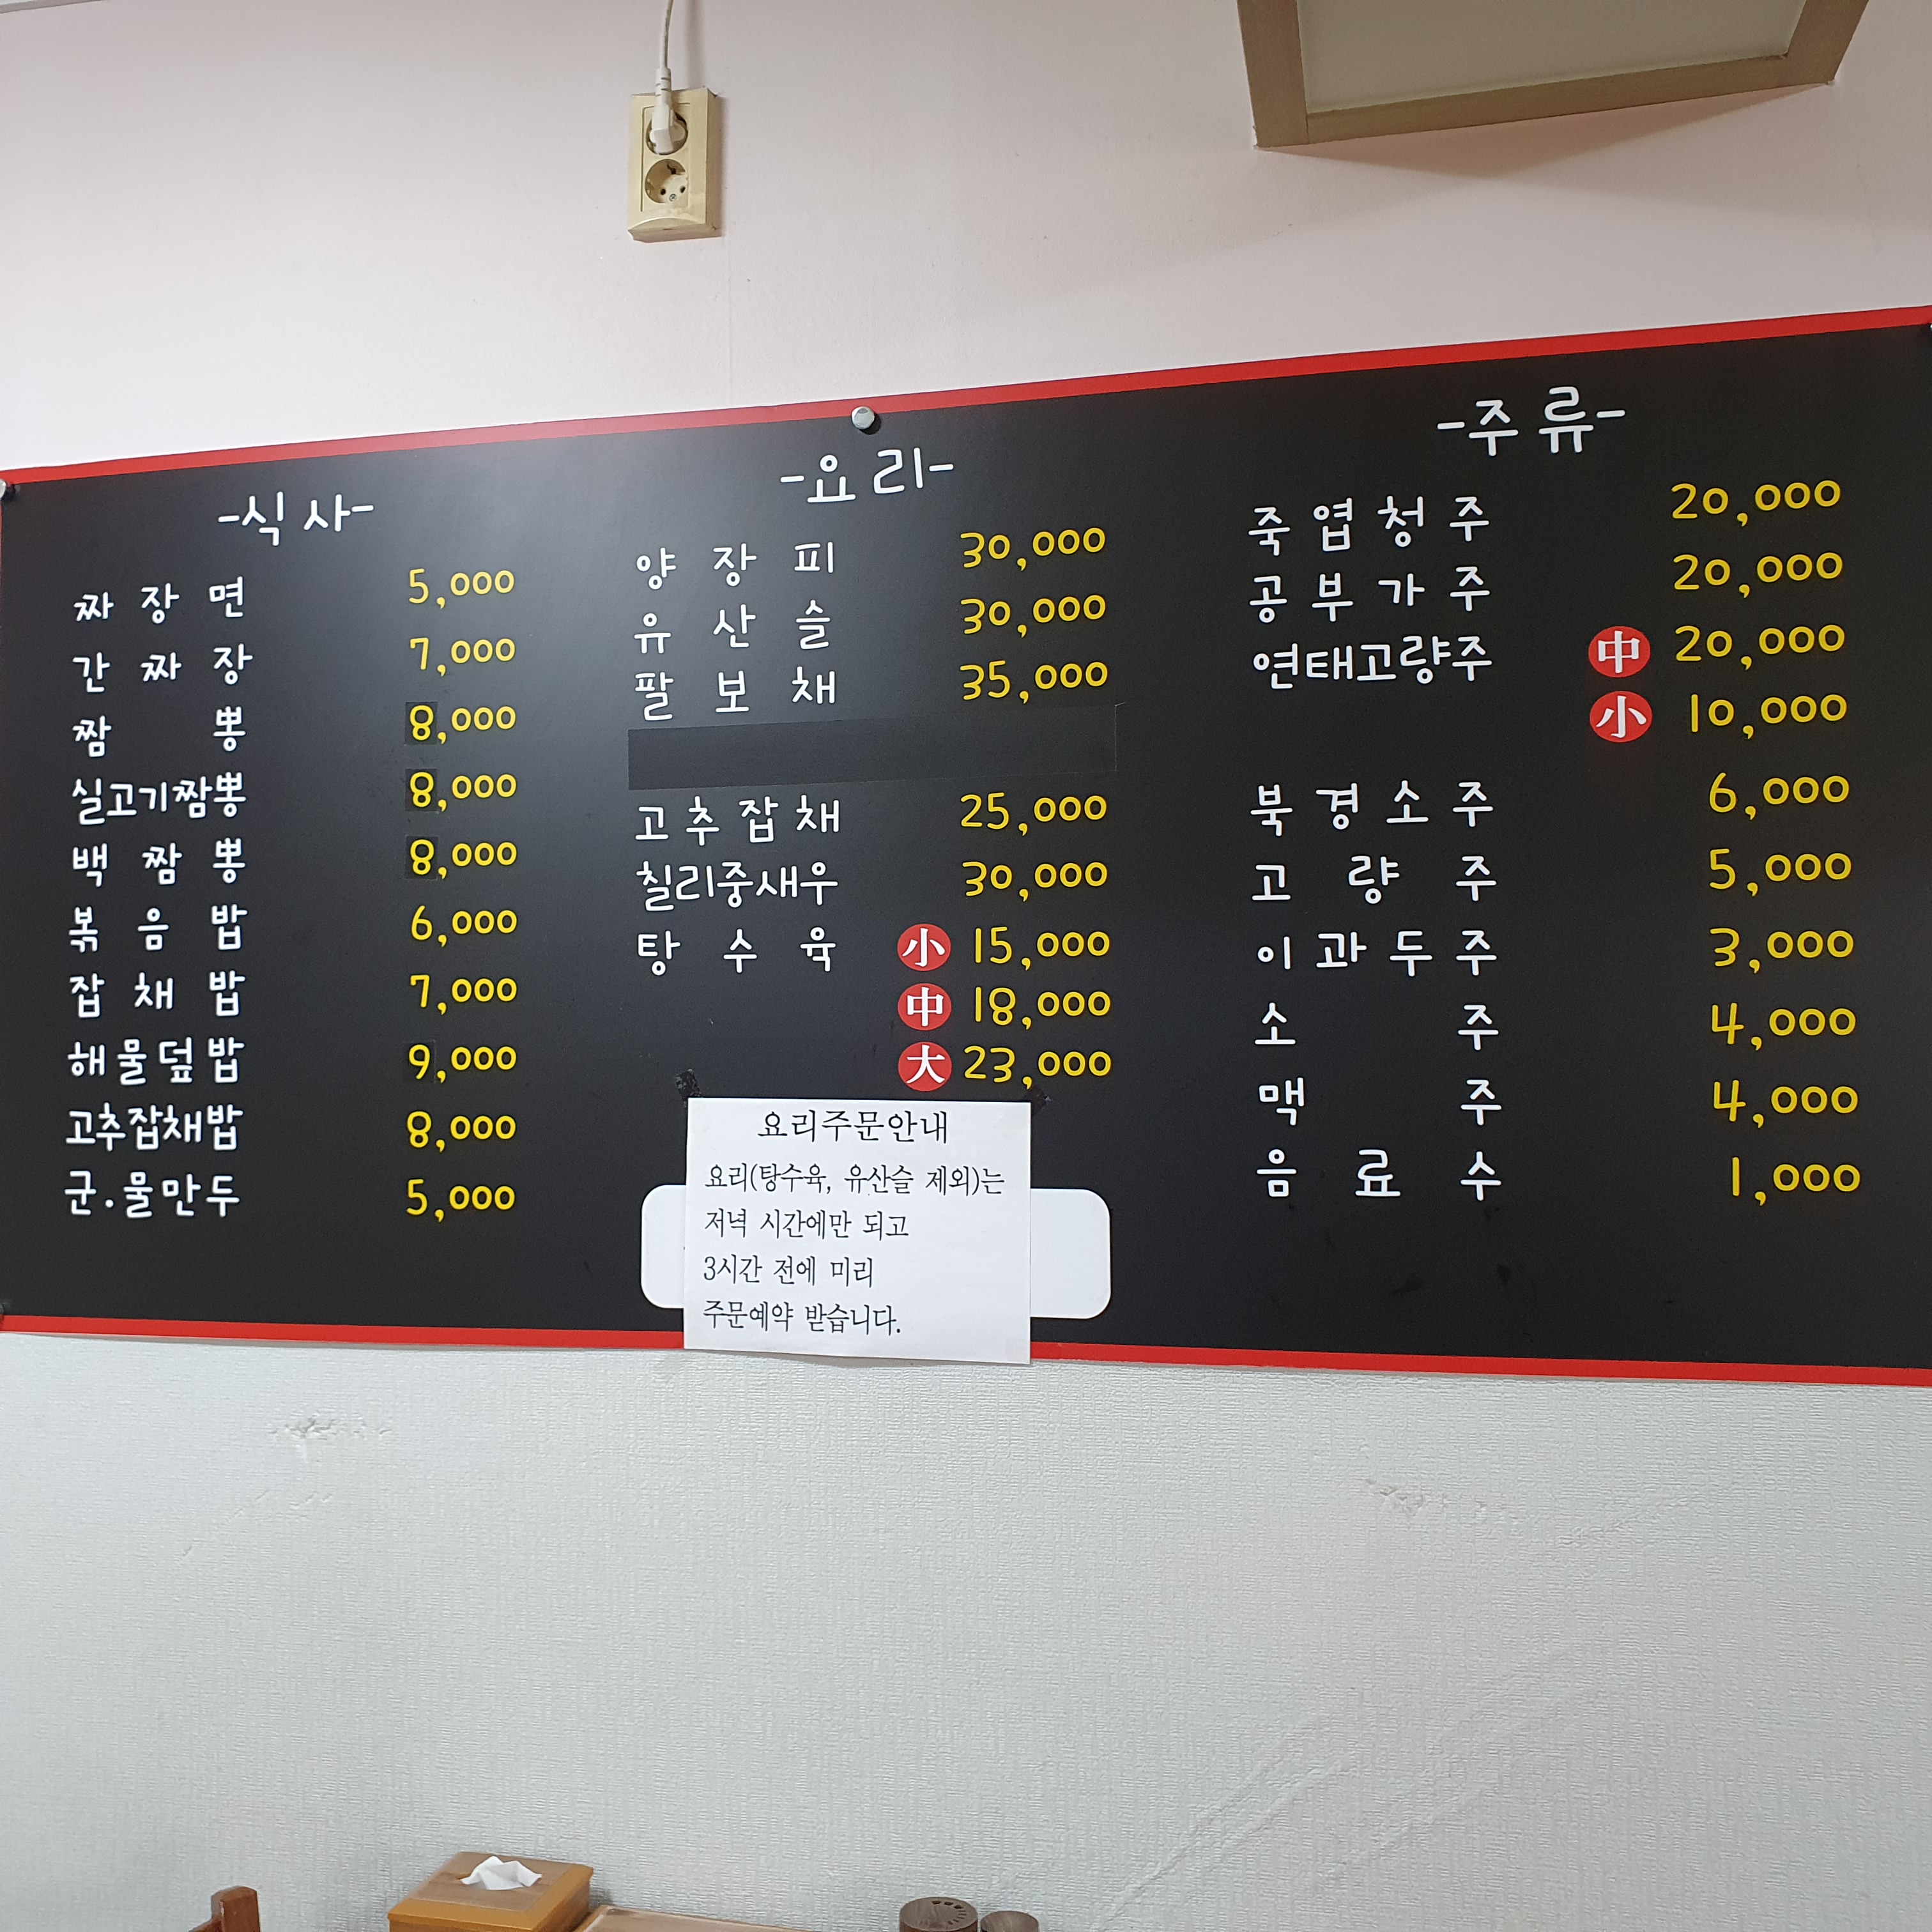 -식사-
짜장면 5,000
간짜장 7,000
짬뽕 8,000
실고기짬뽕 8,000
백짬뽕 8,000
볶음밥 6,000
잡채밥 7,000
해물덮밥 9,000
고추잡채밥 8,000
군.물만두 5,000
-요리-
양장피 30,000
유산슬 30,000
팔보채 35,000
고추잡채 25,000
칠리중새우 30,000
탕수육 小 15,000
中 18,000
大 23,000
요리주문안내
요리(탕수육, 유산슬 제외)는
저녁 시간에만 되고
3시간 전에 미리
주문예약 받습니다.
-주류-
죽엽청주 20,000
공부가주 20,000
연태고량주 中 20,000
小 10,000
북경소주 6,000
고량주 5,000
이과두주 3,000
소주 4,000
맥주 4,000
음료수 1,000